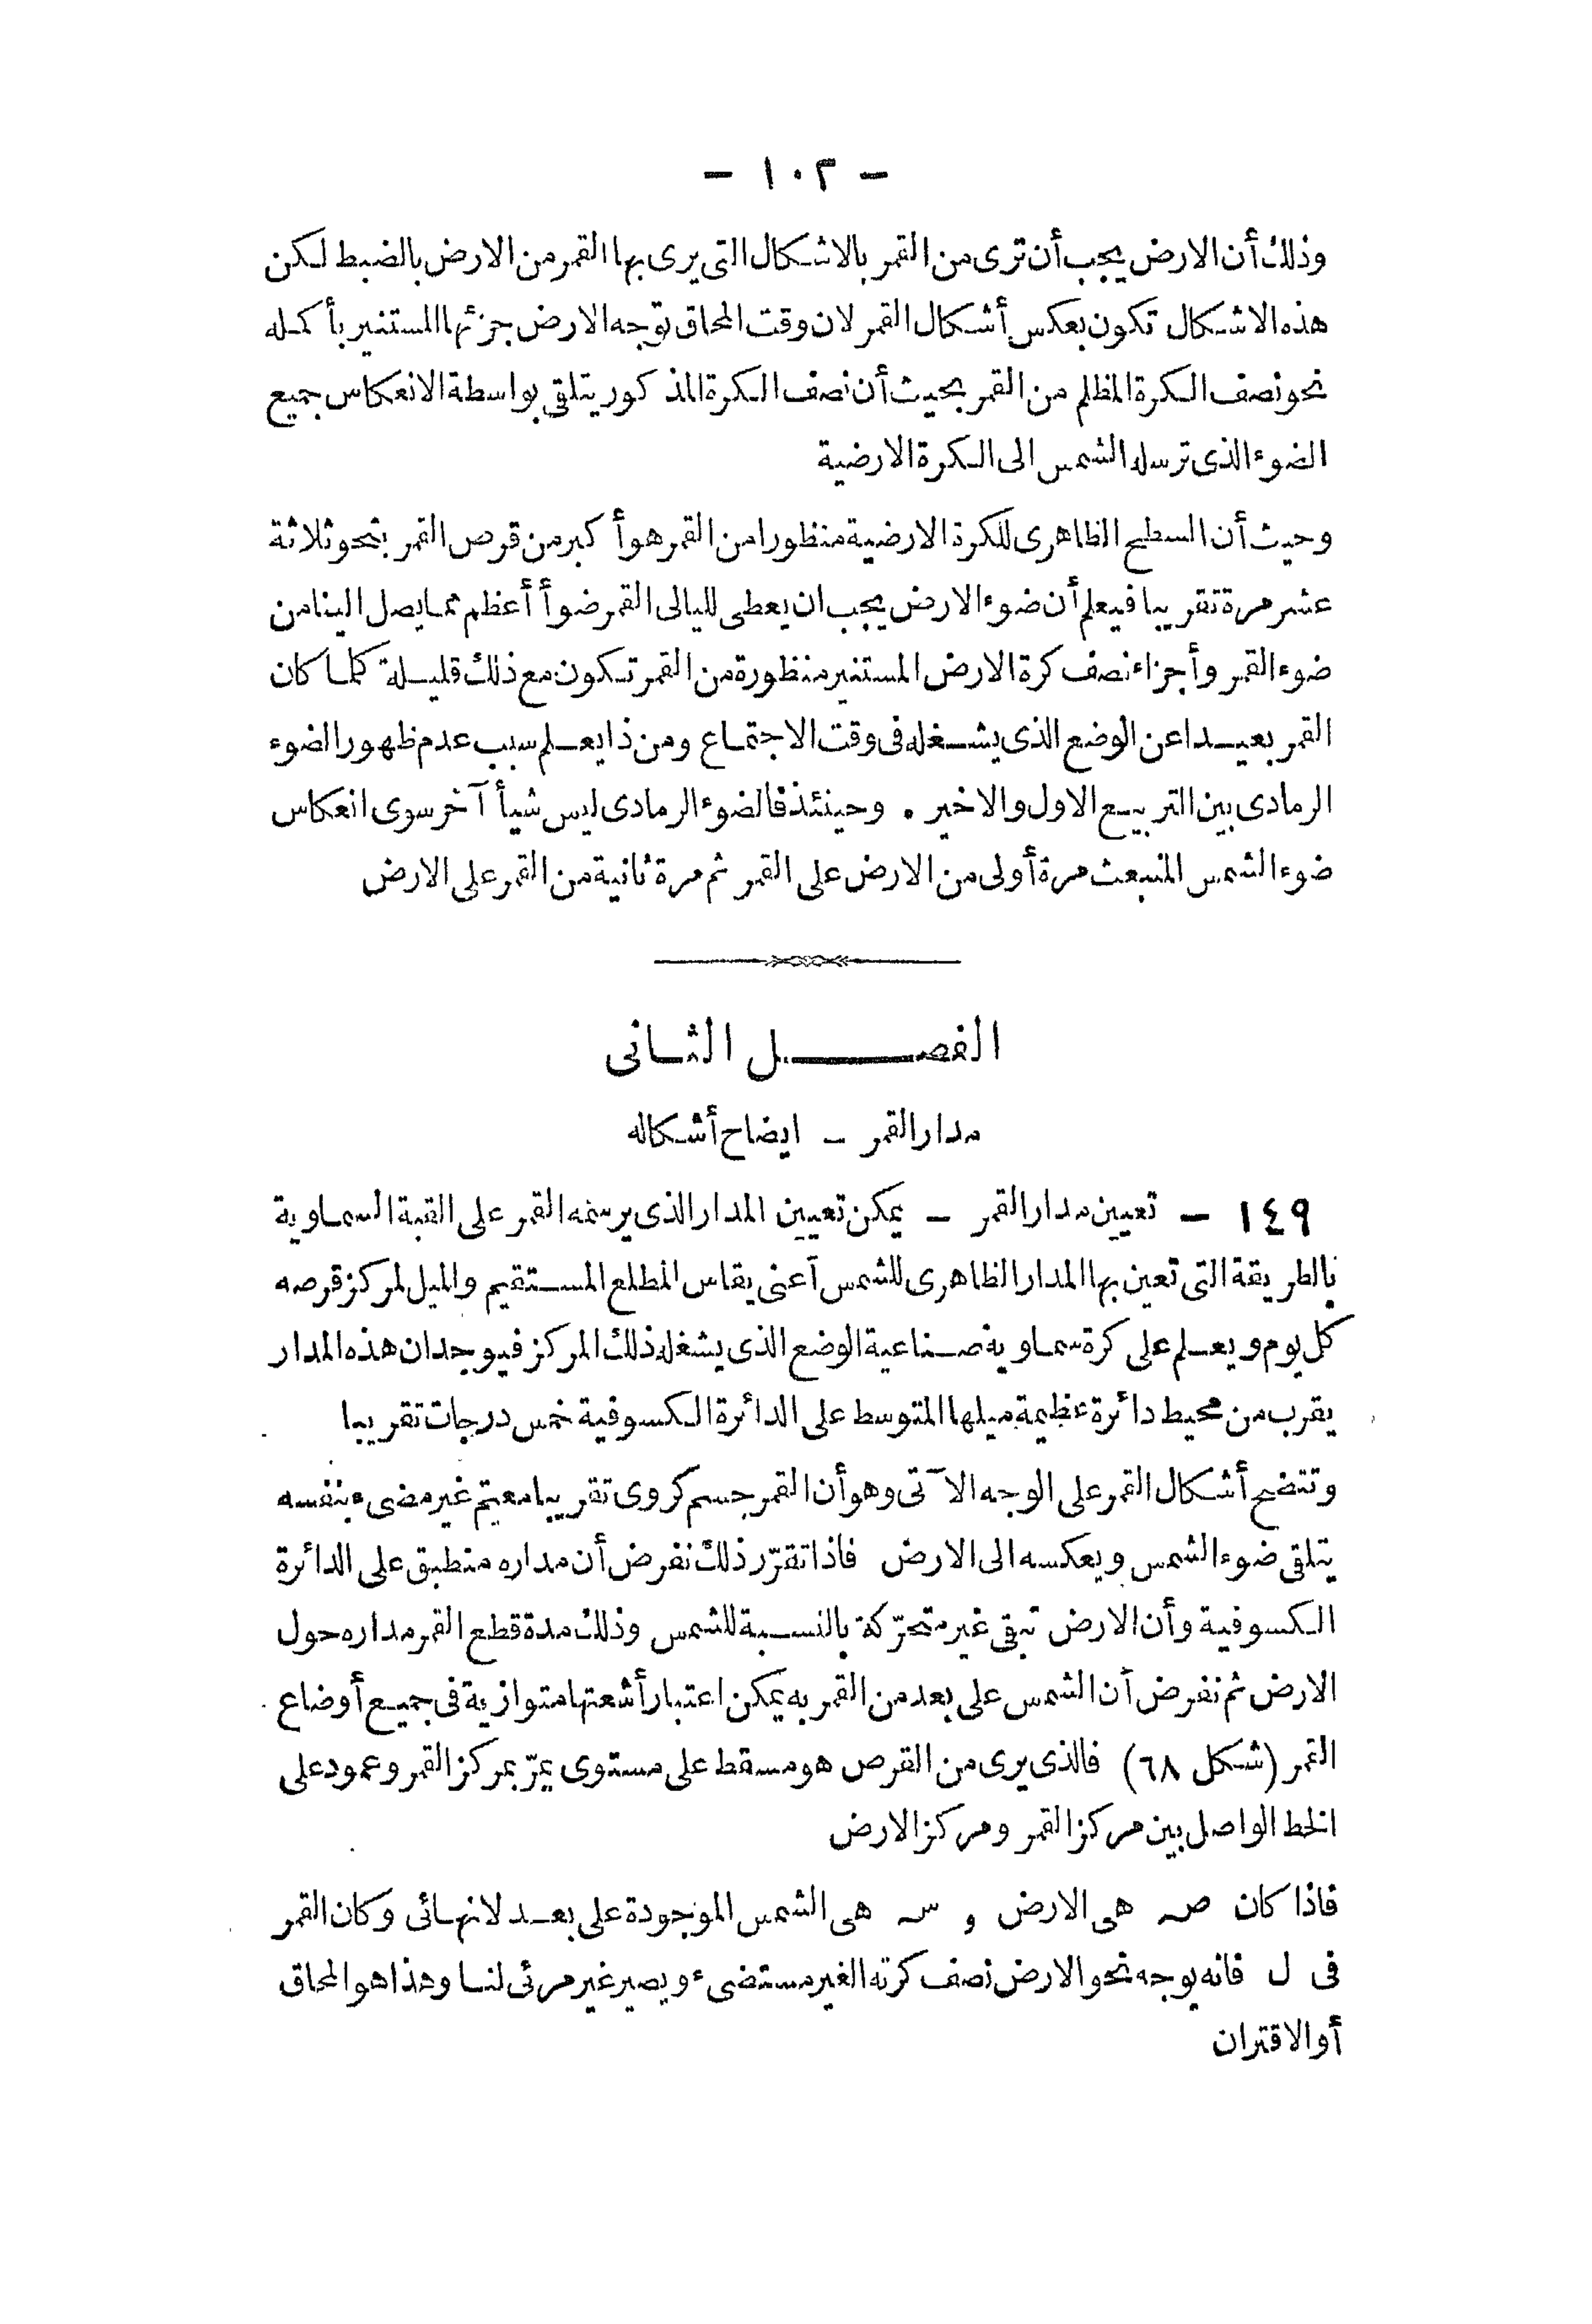 - ١٠٢ -
وذلك أن الارض يجب أن ترى من القمر بالاشكال التى يرى بها القمر من الارض بالضبط لكن
هذه الاشكال تكون بعكس أشكال القمر لان وقت المحاق توجه الارض جزئها المستنير بأكمله
نحو نصف الكرة المظلم من القمر بحيث أن نصف الكرة المذكور يتلقى بواسطة الانعكاس جميع
الضوء الذى ترسله الشمس الى الكرة الارضية
وحيث أن السطح الظاهرى للكرة الارضية منظورا من القمر هو أكبر من قرص القمر بنحو ثلاثة
عشر مرة تقريبا فيعلم أن ضوء الارض يجب ان يعطى لليالى القمر ضوأ أعظم مما يصل الينا من
ضوء القمر وأجزاء نصف كرة الارض المستنير منظورة من القمر تكون مع ذلك قليلة كلما كان
القمر بعيدا عن الوضع الذى يشغله فى وقت الاجتماع ومن ذا يعلم سبب عدم ظهور الضوء
الرمادى بين التربيع الاول والاخير . وحينئذ فالضوء الرمادى ليس شيأ آخر سوى انعكاس
ضوء الشمس المنبعث مرة أولى من الارض على القمر ثم مرة ثانية من القمر على الارض
الفصل الثانى
مدار القمر - ايضاح أشكاله
١٤٩ - تعيين مدار القمر - يمكن تعيين المدار الذى يرسمه القمر على القبة السماوية
بالطريقة التى تعين بها المدار الظاهرى للشمس أعنى يقاس المطلع المستقيم والميل لمركز قرصه
كل يوم ويعلم على كرة سماوية صناعية الوضع الذى يشغله ذلك المركز فيوجد ان هذه المدار
يقرب من محيط دائرة عظيمة ميلها المتوسط على الدائرة الكسوفية خمس درجات تقريبا
وتتضح أشكال القمر على الوجه الآتى وهو أن القمر جسم كروى تقريبا معتم غير مضىء بنفسه
يتلقى ضوء الشمس ويعكسه الى الارض فاذا تقرّر ذلك نفرض أن مداره منطبق على الدائرة
الكسوفية وأن الارض تبقى غير متحرّكة بالنسبة للشمس وذلك مدة قطع القمر مداره حول
الارض ثم نفرض أن الشمس على بعد من القمر به يمكن اعتبار أشعتها متوازية فى جميع أوضاع
القمر (شكل ٦٨) فالذى يرى من القرص هو مسقط على مستوى يمرّ بمركز القمر وعمود على
الخط الواصل بين مركز القمر ومركز الارض
فاذا كان صـ هى الارض و سـ هى الشمس الموجودة على بعد لانهائى وكان القمر
فى ل فانه يوجه نحو الارض نصف كرته الغير مستضىء ويصير غير مرئى لنا وهذا هو المحاق
أو الاقتران